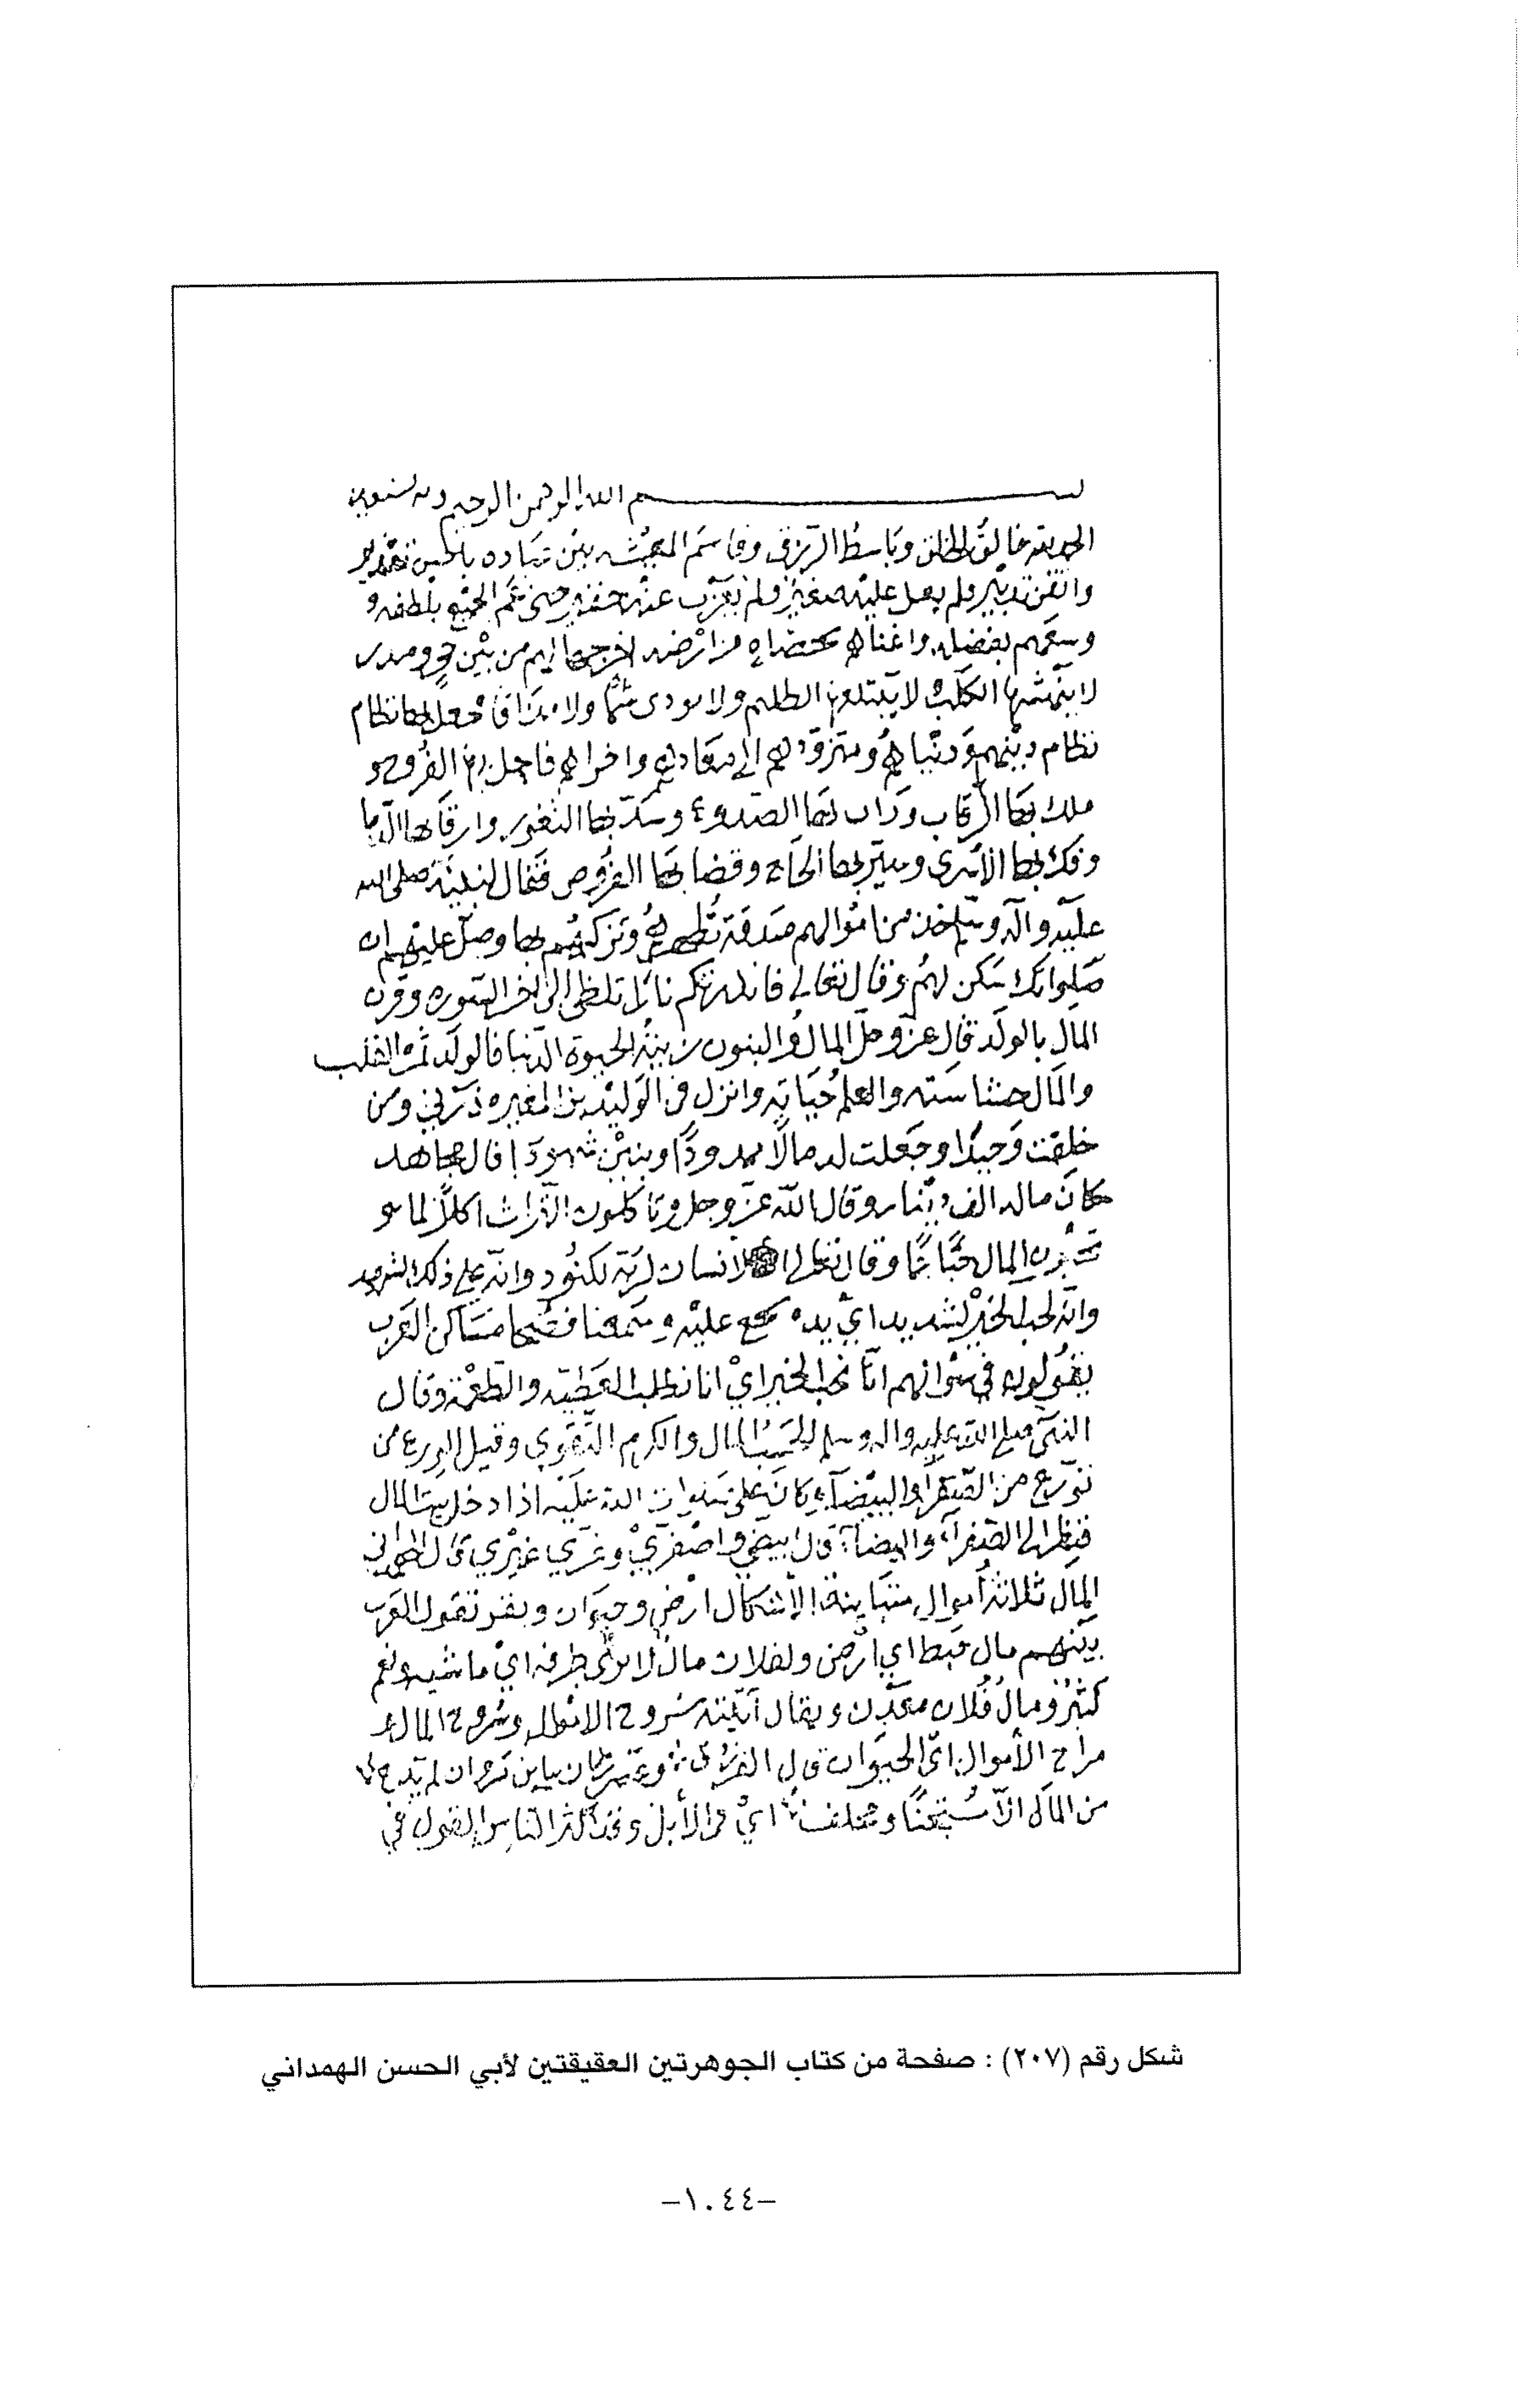 بسم الله الرحمن الرحيم وبه نستعين
الحمد لله خالق الخلق وباسط الرزق وقاسم المعيشه بين عباده باحسن تقدير
واتقن تدبير ولم عليه صغير ولم يعزب عنه حقير حتى عم الجميع بلطفه و
وسعهم بفضله واغناهم من ارضه اخرجها لهم من بين ومدر
لا الكلب لا يبتلعها الظليم ولا ولا فجعلها نظام
نظام دينهم ودنياهم ومتزودهم الى معادهم واخراهم فاحل بها الفروج و
ملك بها الرقاب بها الصدوع وسد بها الثغور وارقا بها الدما
وفك بها الاسرى وسير بها الحاج وقضا بها الفروض فقال لنبيه صلى الله
عليه واله وسلم خذ من اموالهم صدقة تطهرهم وتزكيهم بها وصل عليهم ان
صلواتك سكن لهم وقال تعالى فانذرتكم نارا تلظى الى اخر السوره وقرن
المال بالولد قال عز وجل المال والبنون زينة الحيوة الدنيا فالولد ثمره القلب
والمال حشاشته والعلم حياته وانزل في الوليد بن المغيره ذرني ومن
خلقت وحيدا وجعلت له مالا ممدودا وبنين شهودا قال مجاهد
كان ماله الف دينار وقال الله عز وجل وتاكلون التراث اكلا لما و
تحبون المال حبا جما وقال تعالى ان الانسان لربه لكنود وانه على ذلك لشهيد
وانه لحب الخير لشديد اي يده عليه وسمعنا فصحا مساكن العرب
يقولون في سؤالهم انا نحب الخير اي انا نطلب العطيه والطعمة وقال
النبي صلى الله عليه واله وسلم الحسب المال والكرم التقوى وقيل الورع من
تورع من الصفرا والبيضآء وكان على صلوات الله عليه اذا دخل بيت المال
فنظر الى الصفرآء والبيضآء قال ابيضي واصفري وغري غيري قال الهمداني
المال ثلاثة اموال متباينة الاشكال ارض وحيوان وتقول العرب
بينهم مال اي ارض ولفلان مال لا يرى طرفه اي ماشيه ونعم
كثير ومال فلان معدن ويقال اتيته سروح الاموال وسروح المال و
مراح الاموال اي الحيوان قال الفرزدق وعض زمان يا ابن مروان لم يدع
من المال الا مسحتا ومجلف اي من الابل وقد اكثر الناس القول في
شكل رقم (٢٠٧) : صفحة من كتاب الجوهرتين العقيقتين لأبي الحسن الهمداني
-١٠٤٤-